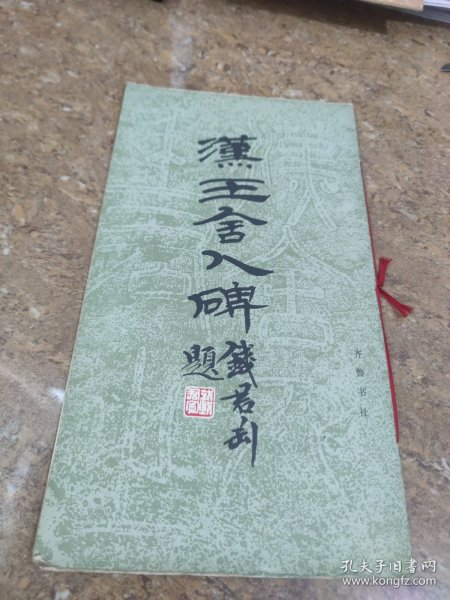 漢王舍人碑
錢君匋
題
孔夫子旧书网
www.kongfz.com